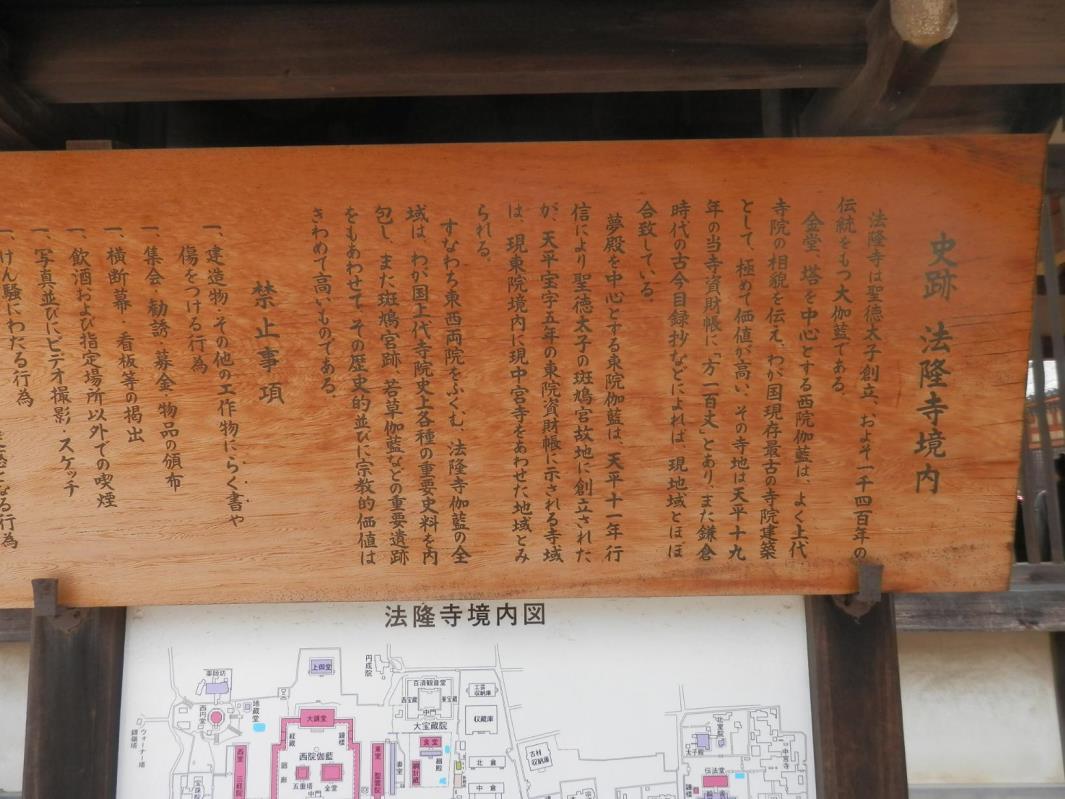 史跡 法隆寺境内
法隆寺は聖徳太子創立、およそ一千四百年の
伝統をもつ大伽藍である。
金堂、塔を中心とする西院伽藍は、よく上代
寺院の相貌を伝え、わが国現存最古の寺院建築
として、極めて価値が高い。その寺地は天平十九
年の当寺資財帳に「方一百丈」とあり、また鎌倉
時代の古今目録抄などによれば、現地域とほぼ
合致している。
夢殿を中心とする東院伽藍は、天平十一年行
信により聖徳太子の斑鳩宮故地に創立された
が、天平宝字五年の東院資財帳に示される寺域
は、現東院境内に現中宮寺をあわせた地域とみ
られる。
すなわち東西両院をふくむ、法隆寺伽藍の全
域は、わが国上代寺院史上各種の重要史料を内
包し、また斑鳩宮跡、若草伽藍などの重要遺跡
をもあわせて、その歴史的並びに宗教的価値は
きわめて高いものである。
禁止事項
一、建造物・その他の工作物にらく書や
傷をつける行為
一、集会・勧誘・募金・物品の頒布
一、横断幕・看板等の掲出
一、飲酒および指定場所以外での喫煙
一、写真並びにビデオ撮影・スケッチ
一、けん騒にわたる行為
となる行為
法隆寺境内図
薬師坊
上御堂
円成院
百済観音堂
西宝蔵
東宝蔵
中門
大宝蔵院
西円堂
地蔵堂
大講堂
経蔵
鐘楼
西院伽藍
廻廊
五重塔
金堂
中門
西室
三経院
東室
聖霊院
妻室
食堂
細殿
綱封蔵
収蔵庫
北倉
中倉
古材
収納庫
ウォーナー塔
宝珠院
北室堂
太子殿
中宮寺
伝法堂
鐘楼